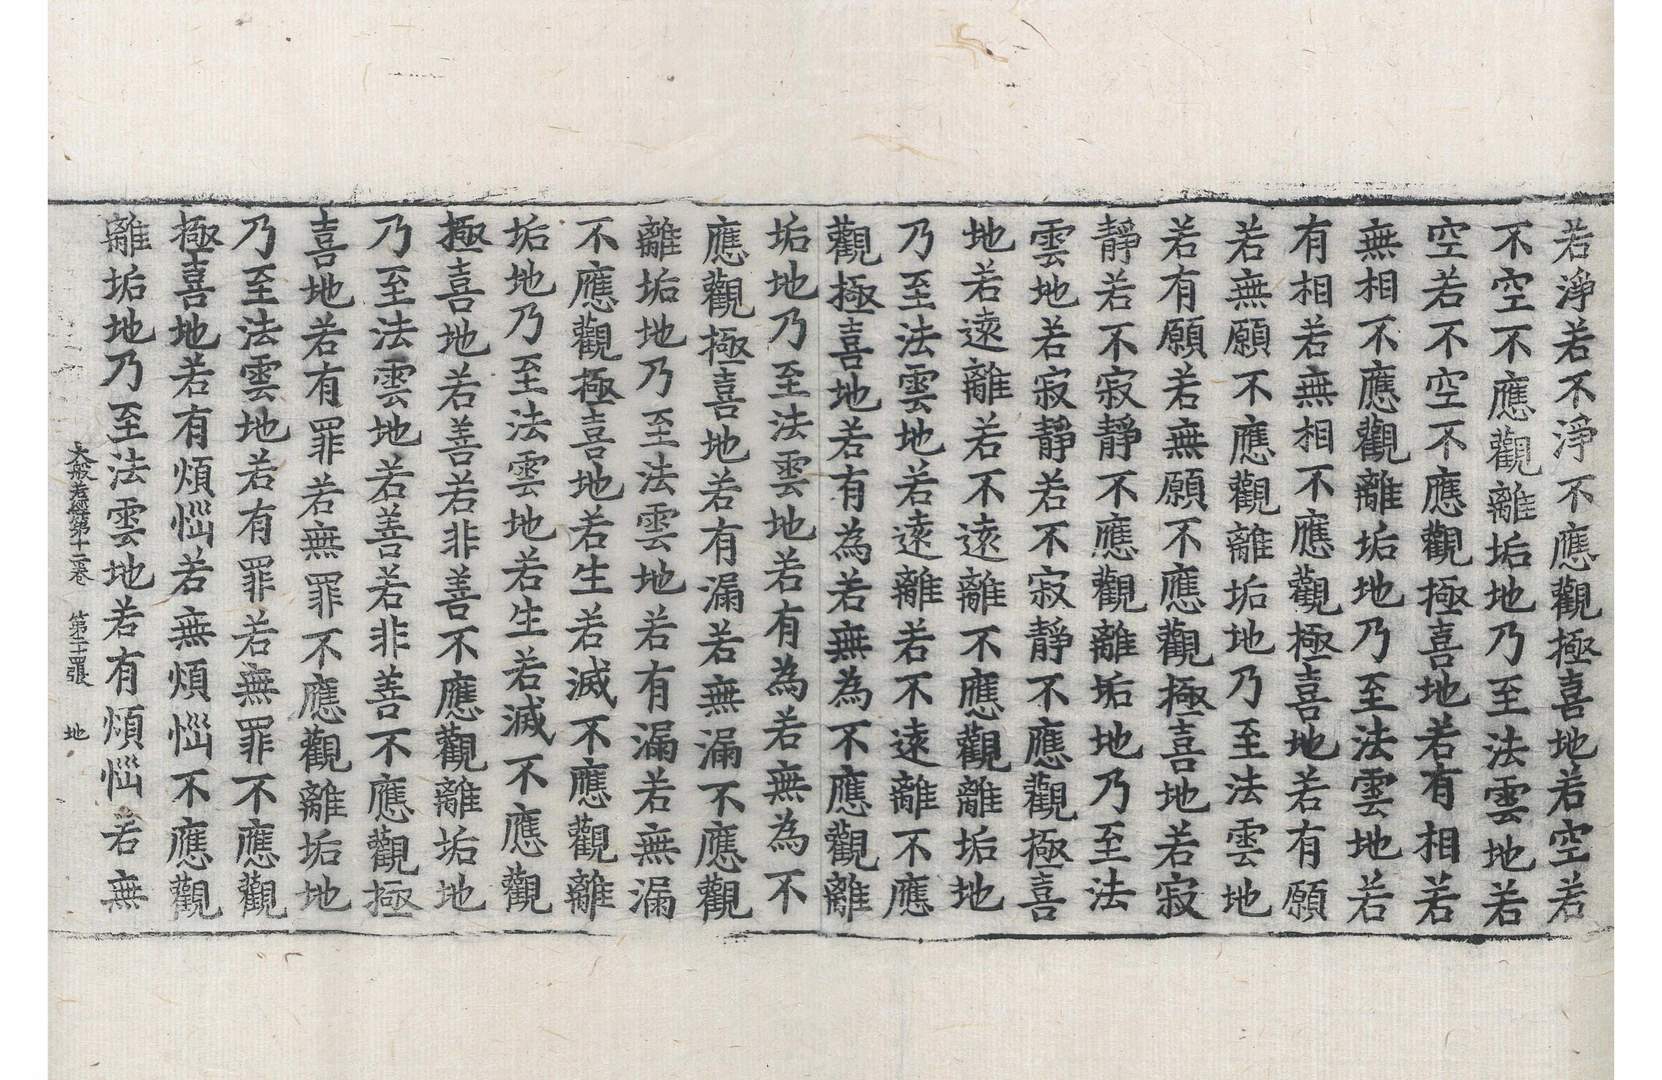 若淨若不淨不應觀極喜地若空若
不空不應觀離垢地乃至法雲地若
空若不空不應觀極喜地若有相若
無相不應觀離垢地乃至法雲地若
有相若無相不應觀極喜地若有願
若無願不應觀離垢地乃至法雲地
若有願若無願不應觀極喜地若寂
靜若不寂靜不應觀離垢地乃至法
雲地若寂靜若不寂靜不應觀極喜
地若遠離若不遠離不應觀離垢地
乃至法雲地若遠離若不遠離不應
觀極喜地若有為若無為不應觀離
垢地乃至法雲地若有為若無為不
應觀極喜地若有漏若無漏不應觀
離垢地乃至法雲地若有漏若無漏
不應觀極喜地若生若滅不應觀離
垢地乃至法雲地若生若滅不應觀
極喜地若善若非善不應觀離垢地
乃至法雲地若善若非善不應觀極
喜地若有罪若無罪不應觀離垢地
乃至法雲地若有罪若無罪不應觀
極喜地若有煩惱若無煩惱不應觀
離垢地乃至法雲地若有煩惱若無
大般若經第十二卷 第張 地